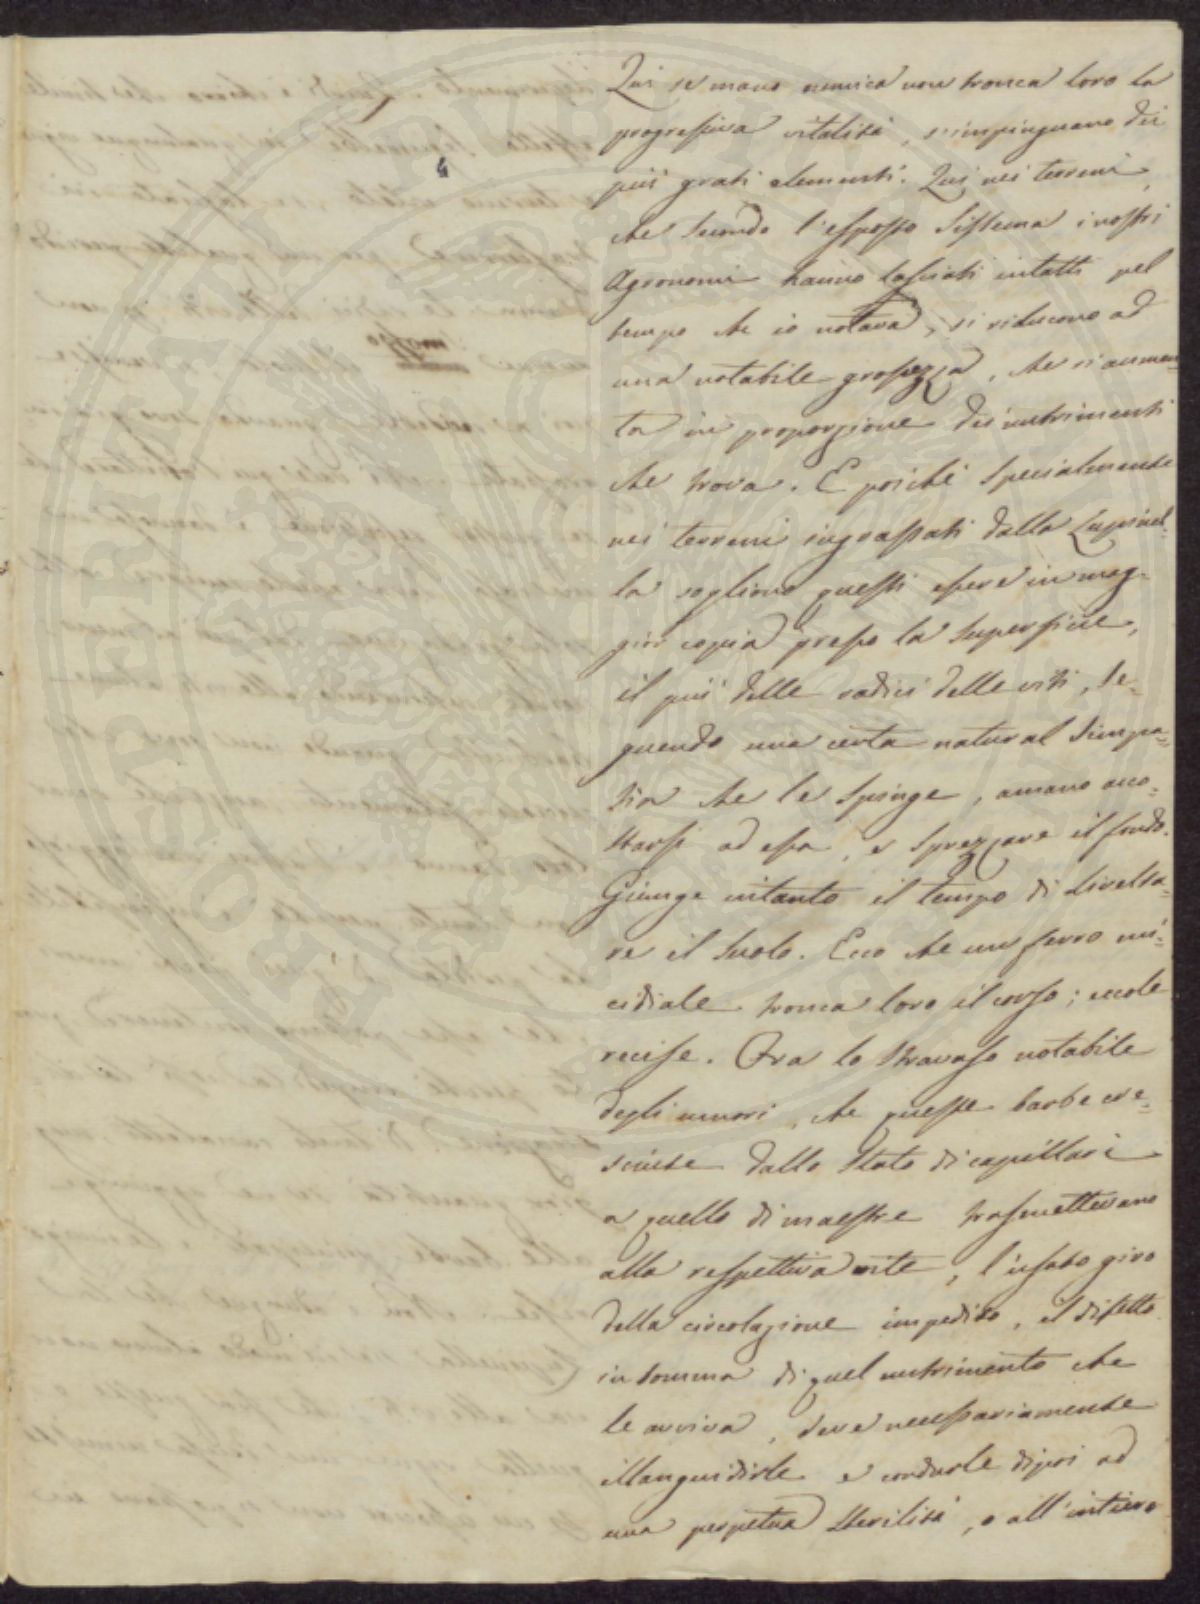 Qui se mano nemica non tronca loro la
progressiva vitalità, s'impinguano dei
più grati elementi. Qui nei terreni,
che secondo l'esposto Sistema i nostri
Agronomi hanno lasciati intatti pel
tempo che io notava, si riducono ad
una notabile grossezza, che si aumen=
ta in proporzione dei nutrimenti
che trova. E poichè specialmente
nei terreni ingrassati dalla Lupinel=
la sogliono questi essere in mag=
gior copia presso la superficie,
il più delle radici delle viti, se=
guendo una certa natural simpa=
tia che le spinge, amano acco=
starsi ad essa, e sprezzare il fondo.
Giunge intanto il tempo di divelta=
re il suolo. Ecco che un ferro mi=
cidiale tronca loro il corso; eccole
recise. Ora lo stravaso notabile
degli umori, che queste barbe cre=
sciute dallo stato di capillari
a quello di maestre trasmettevano
alla respettiva vite, l'usato giro
della circolazione impedito, il difetto
in somma di quel nutrimento che
le avviva, deve necessariamente
illanguidirle e condurle dipoi ad
una perpetua sterilità, o all'intiero
mosso
4